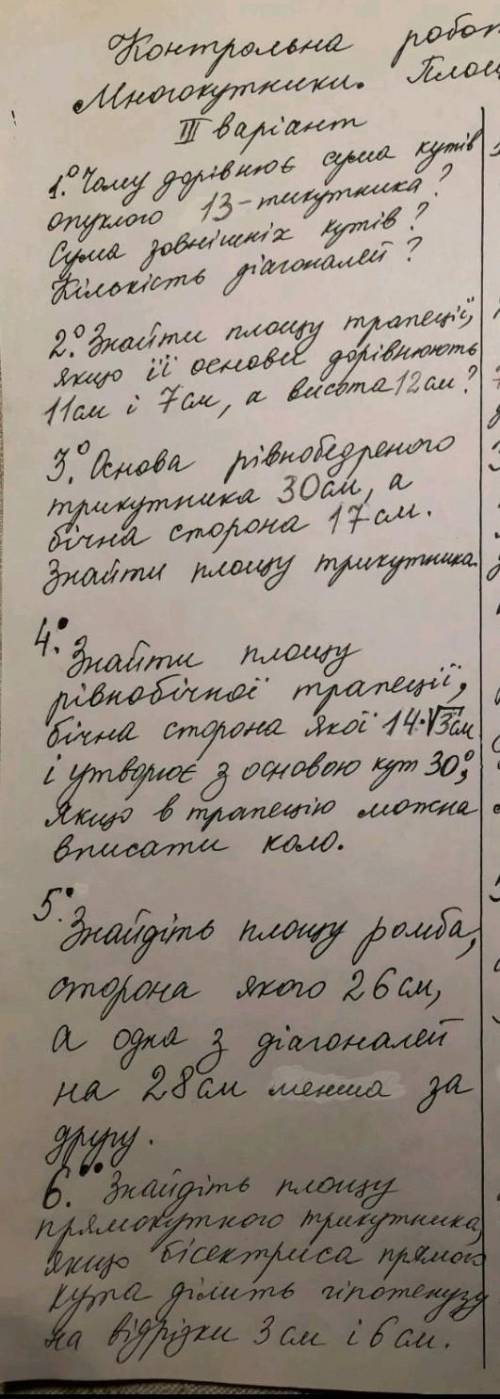 Контрольна робот
Многокутники. Площ
III варіант
1.° Чому дорівнює сума кутів
опуклого 13-тикутника?
Сума зовнішніх кутів?
Кількість діагоналей?
2.° Знайти площу трапеції,
якщо її основи дорівнюють
11см і 7см, а висота 12см?
3.° Основа рівнобедреного
трикутника 30см, а
бічна сторона 17см.
Знайти площу трикутника.
4.• Знайти площу
рівнобічної трапеції,
бічна сторона якої 14·√3см
і утворює з основою кут 30°,
якщо в трапецію можна
вписати коло.
5.• Знайдіть площу ромба,
сторона якого 26см,
а одна з діагоналей
на 28см менша за
другу.
6.•• Знайдіть площу
прямокутного трикутника,
якщо бісектриса прямого
кута ділить гіпотенузу
на відрізки 3см і 6см.